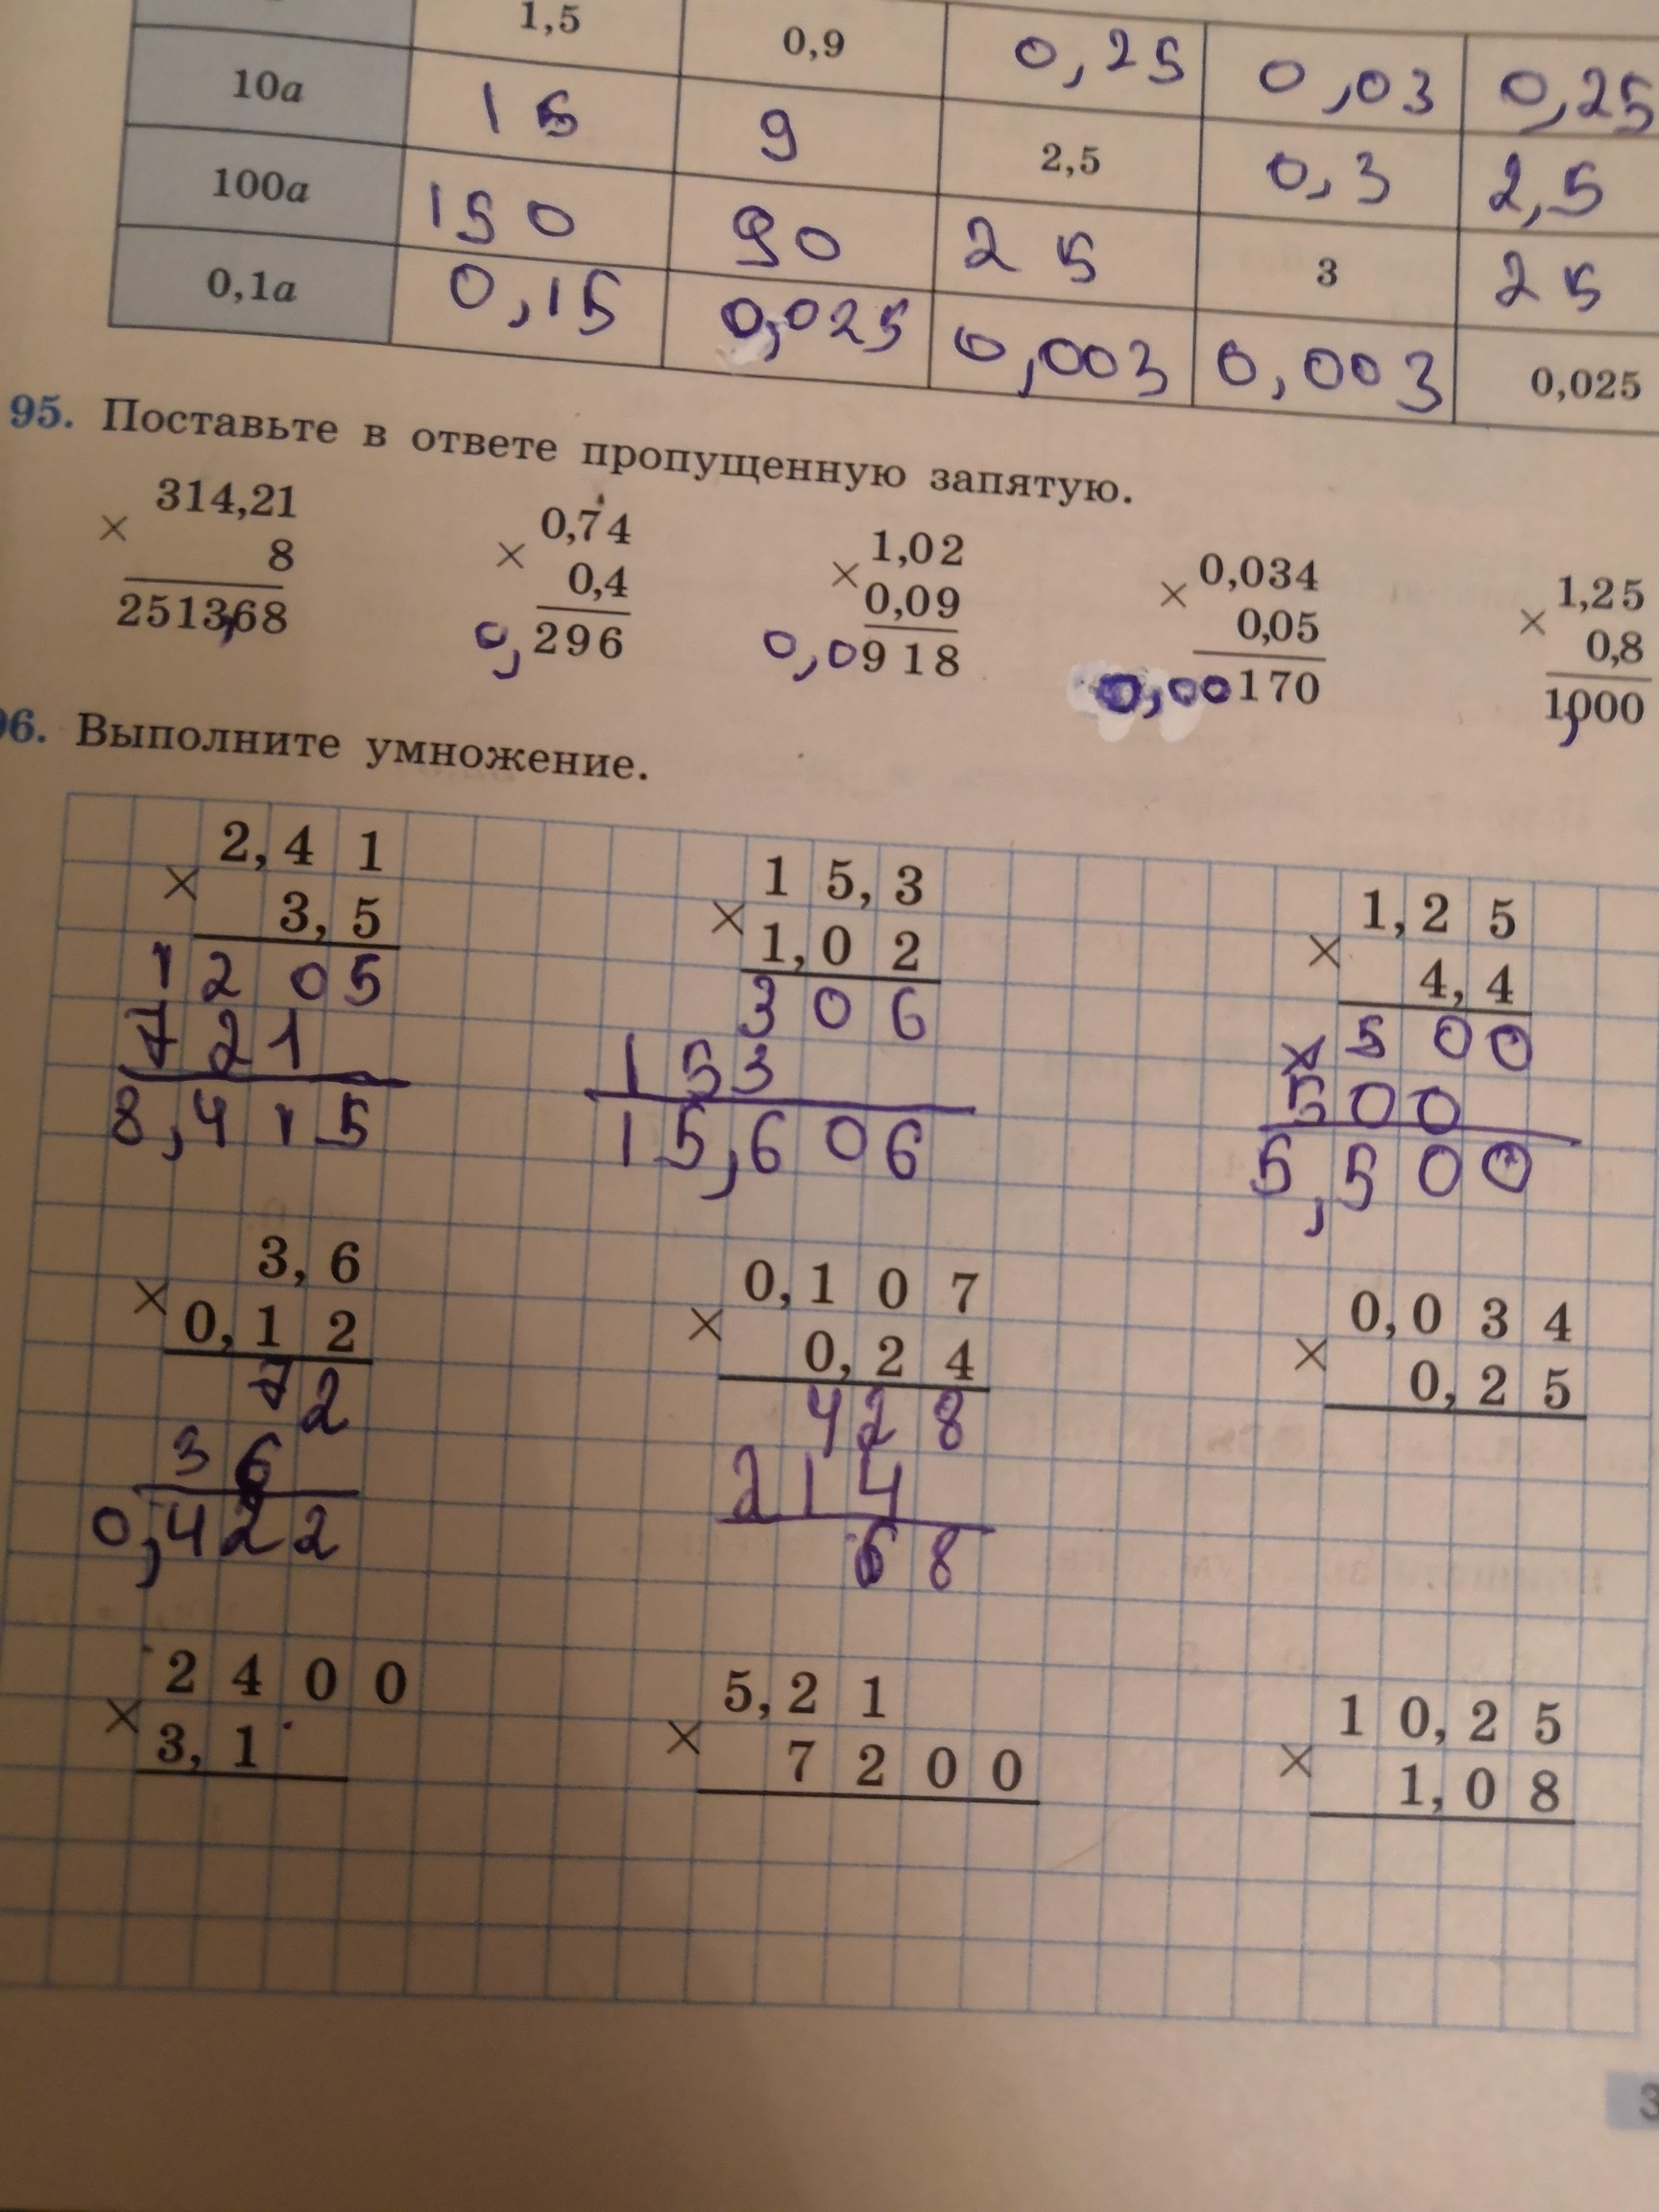 1,5 0,9 0,25 0,03 0,25
10a 15 9 2,5 0,3 2,5
100a 150 90 25 3 25
0,1a 0,15 0,025 0,003 0,003 0,025
95. Поставьте в ответе пропущенную запятую.
314,21 0,74 1,02 0,034 1,25
× 8 × 0,4 × 0,09 × 0,05 × 0,8
2513,68 0,296 0,0918 0,00170 1,000
96. Выполните умножение.
2,41 15,3 1,25
× 3,5 × 1,02 × 4,4
1205 306 × 500
721 153 500
8,415 15,606 5,500
3,6 0,107 0,034
× 0,12 × 0,24 × 0,25
72 428
36 214
0,422 68
2400 5,21 10,25
× 3,1 × 7200 × 1,08
3